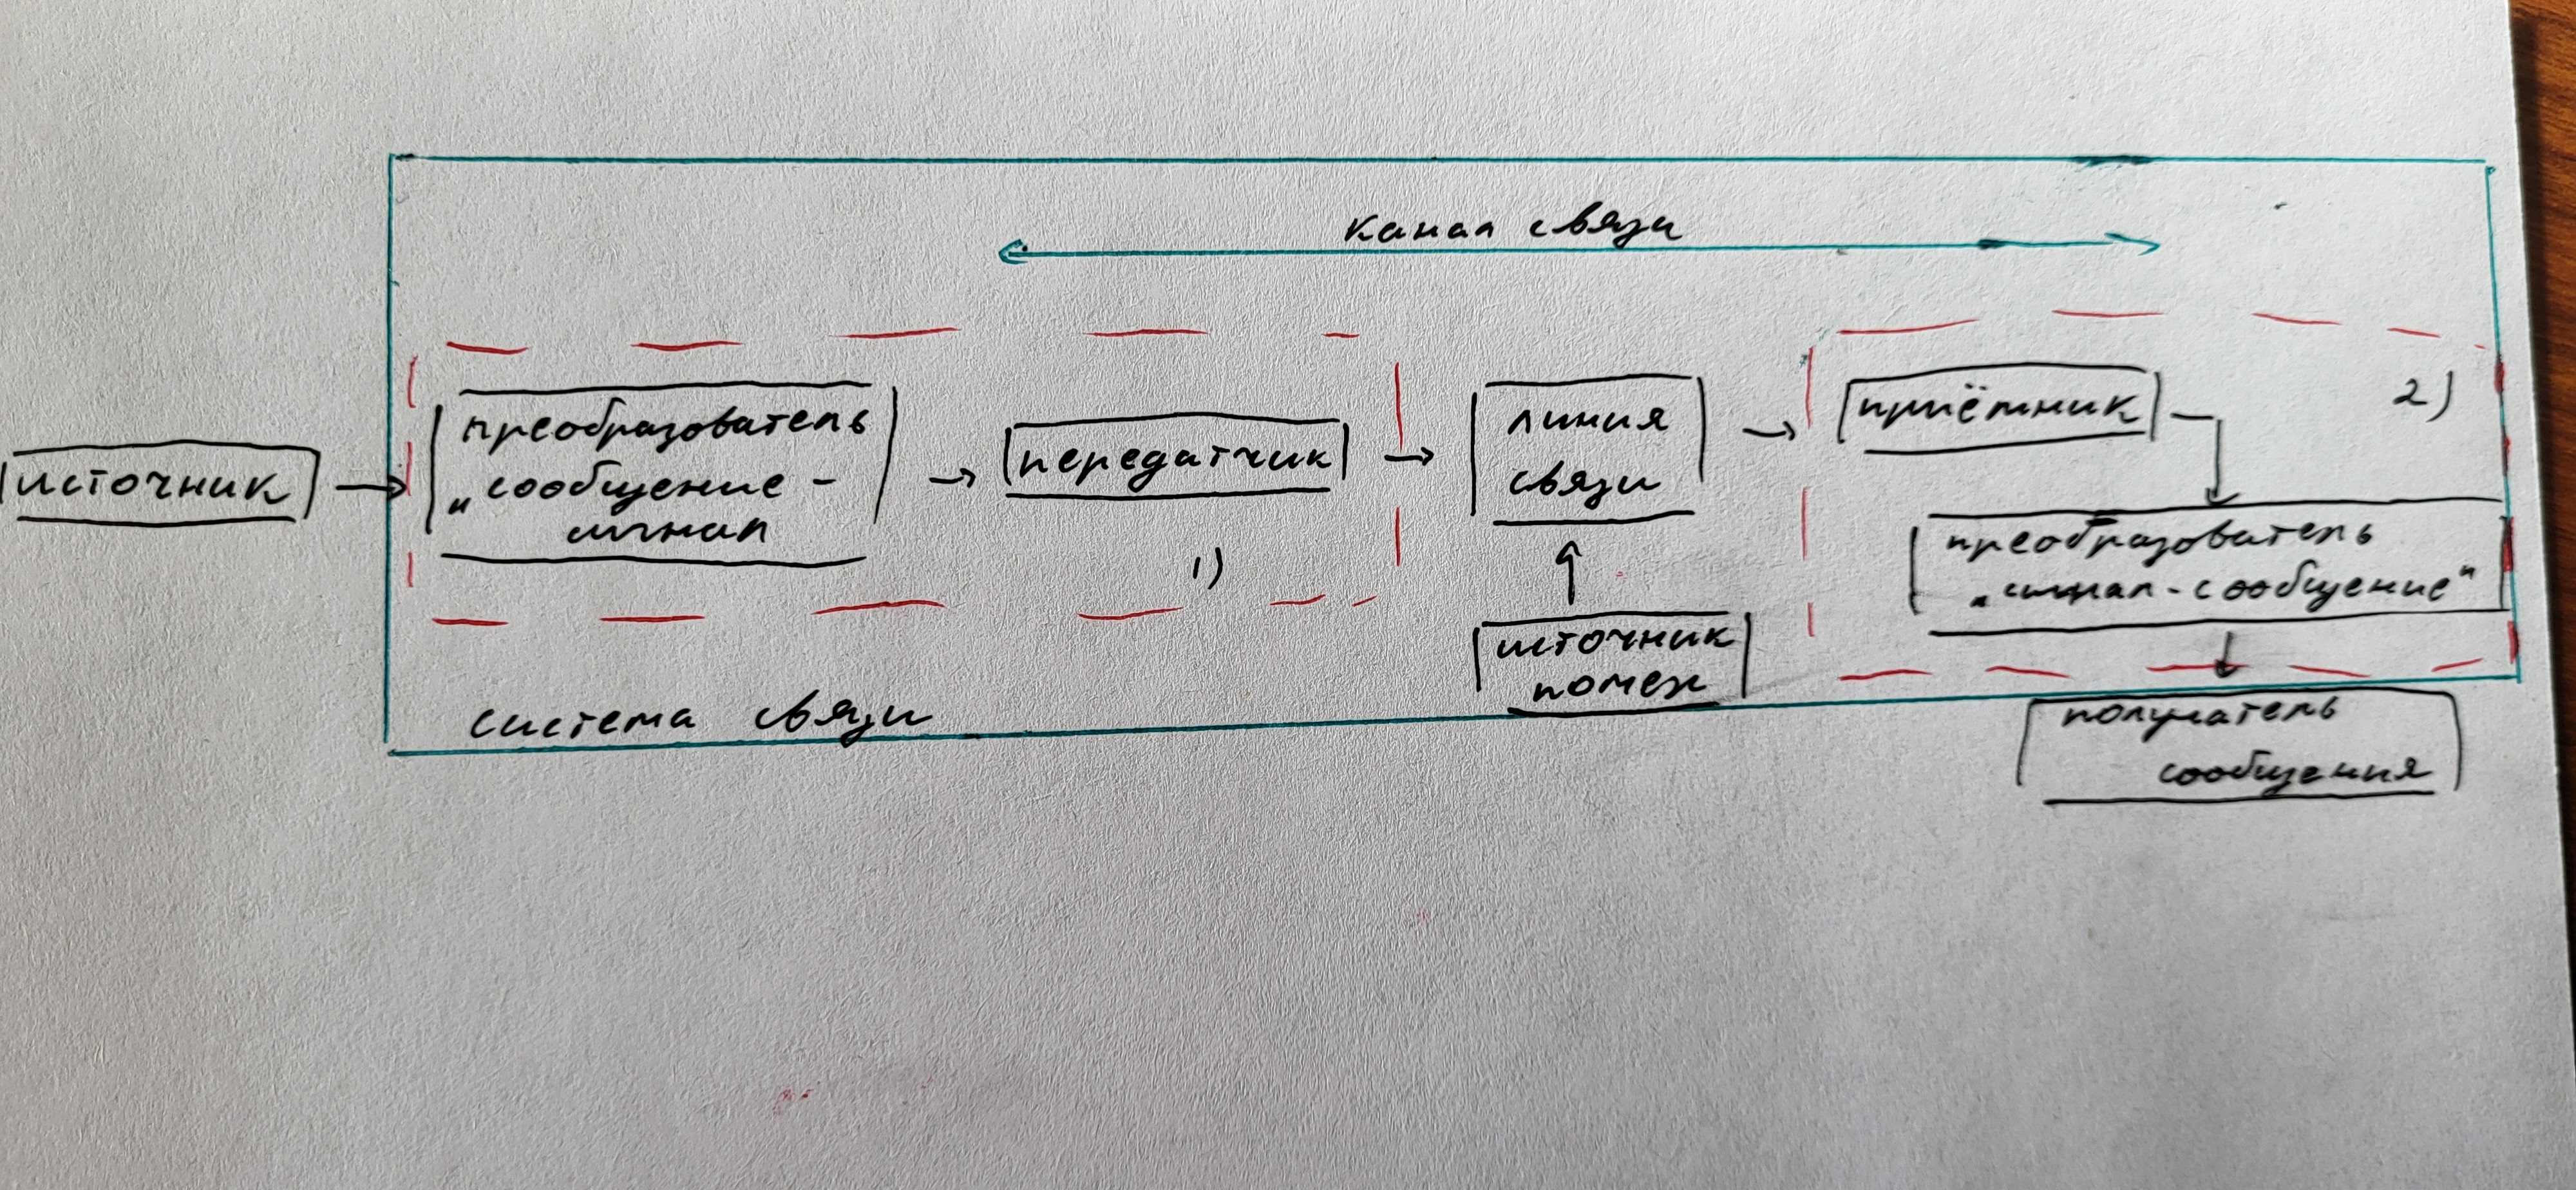 канал связи
источник
преобразователь
„сообщение -
сигнал
передатчик
1)
линия
связи
источник
помех
приёмник
2)
преобразователь
„сигнал-сообщение"
получатель
сообщения
система связи